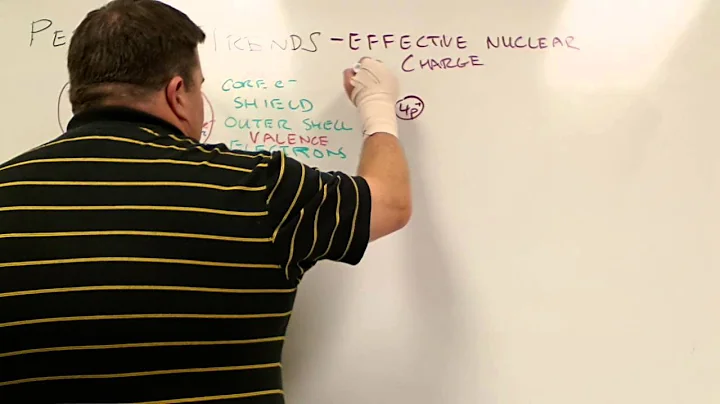 TRENDS - EFFECTIVE NUCLEAR
CHARGE
CORE e-
SHIELD
OUTER SHELL
VALENCE
ELECTRONS
4p+